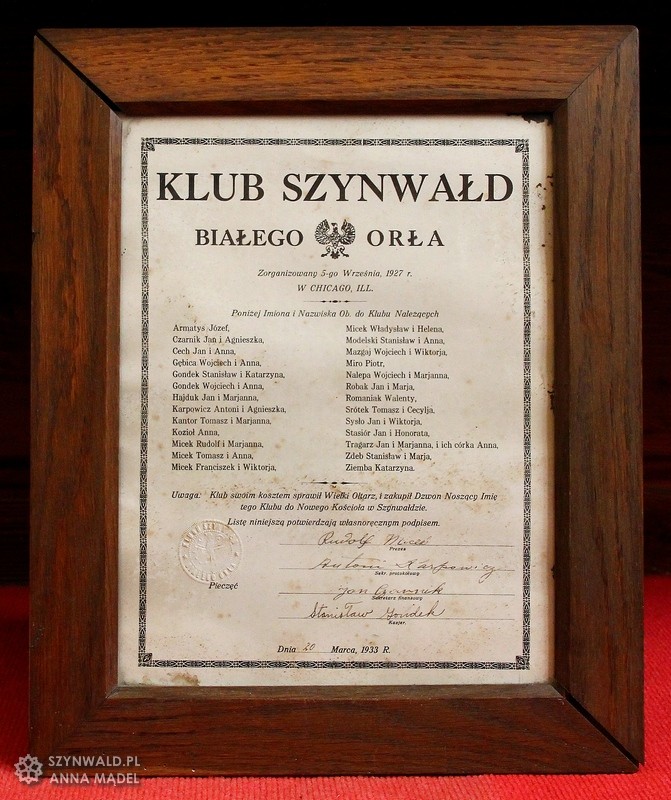 KLUB SZYNWAŁD
BIAŁEGO ORŁA
Zorganizowany 5-go Września, 1927 r.
W CHICAGO, ILL.
Poniżej Imiona i Nazwiska Ob. do Klubu Należących
Armatys Józef,
Czarnik Jan i Agnieszka,
Cech Jan i Anna,
Gębica Wojciech i Anna,
Gondek Stanisław i Katarzyna,
Gondek Wojciech i Anna,
Hajduk Jan i Marjanna,
Karpowicz Antoni i Agnieszka,
Kantor Tomasz i Marjanna,
Kozioł Anna,
Micek Rudolf i Marjanna,
Micek Tomasz i Anna,
Micek Franciszek i Wiktorja,
Micek Władysław i Helena,
Modelski Stanisław i Anna,
Mazgaj Wojciech i Wiktorja,
Miro Piotr,
Nalepa Wojciech i Marjanna,
Robak Jan i Marja,
Romaniak Walenty,
Srótek Tomasz i Cecylja,
Sysło Jan i Wiktorja,
Stasiór Jan i Honorata,
Tragarz Jan i Marjanna, i ich córka Anna,
Zdeb Stanisław i Marja,
Ziemba Katarzyna.
Uwaga: Klub swoim kosztem sprawił Wielki Ołtarz, i zakupił Dzwon Noszący Imię
tego Klubu do Nowego Kościoła w Szynwałdzie.
Listę niniejszą potwierdzają własnoręcznym podpisem.
Rudolf Micek
Prezes
Antoni Karpowicz
Sekr. protokułowy
Pieczęć
Jan Czarnik
Sekretarz finansowy
Stanisław Gondek
Kasjer.
Dnia 20 Marca, 1933 R.
SZYNWALD.PL
ANNA MĄDEL